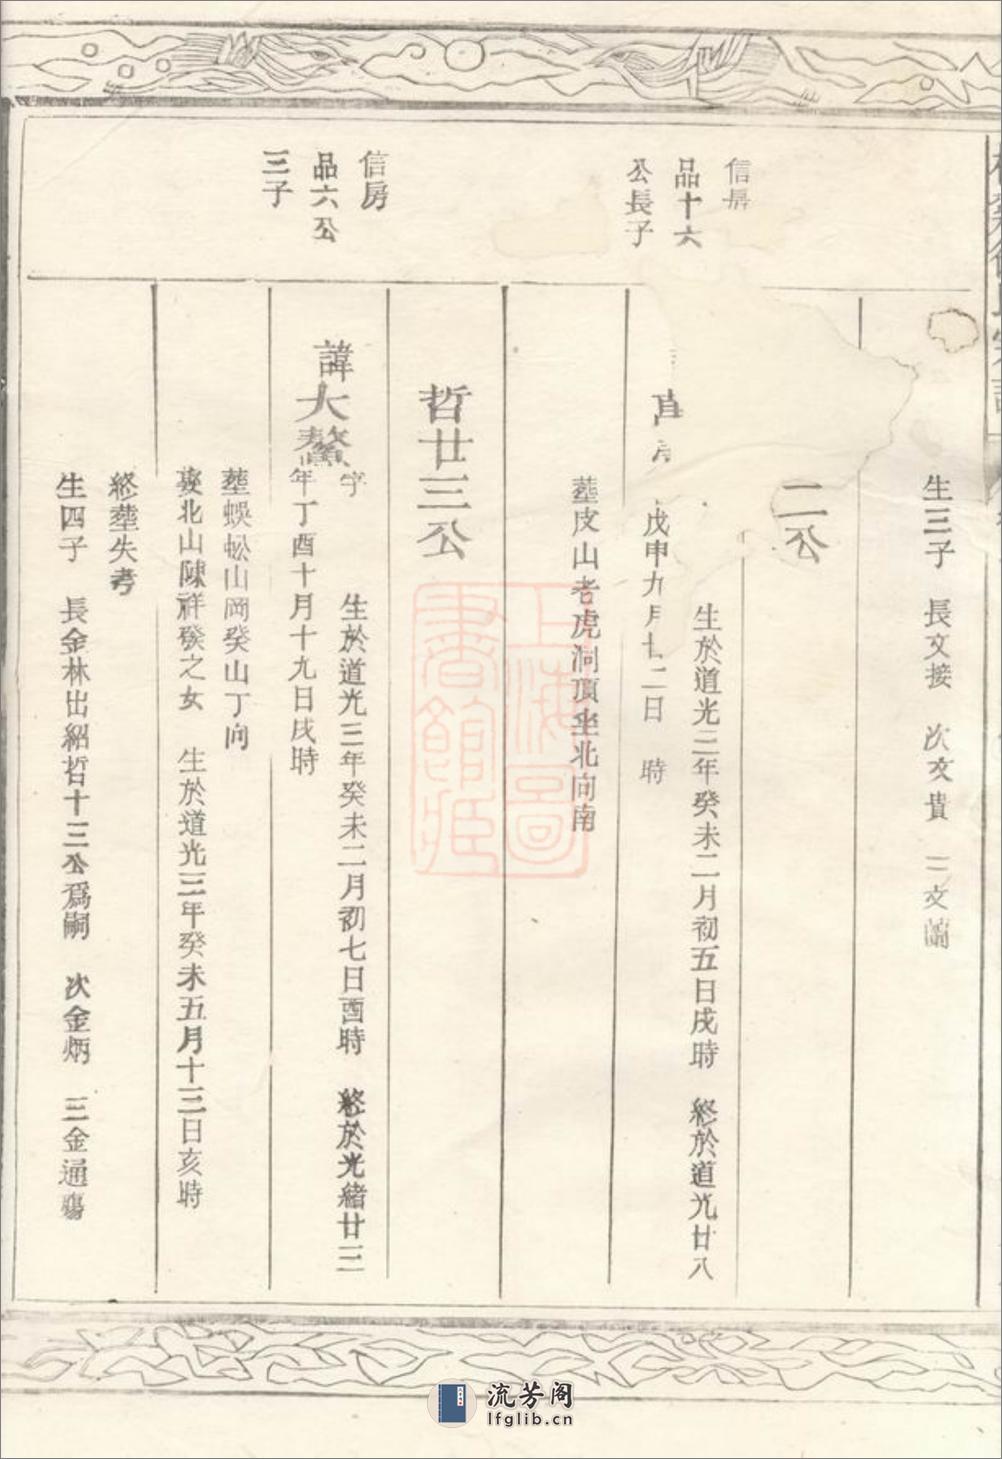 生三子　長文接　次文貴　三文蘭
信房
品十六
公長子
二公
生於道光三年癸未二月初五日戌時　終於道光廿八
戊申九月十二日　時
葬皮山老虎洞頂坐北向南
信房
品六公
三子
哲廿三公
諱大鰲
字
生於道光三年癸未二月初七日酉時　終於光緒廿三
年丁酉十月十九日戌時
葬蜈蚣山岡癸山丁向
娶北山陳祥發之女　生於道光三年癸未五月十三日亥時
終葬失考
生四子　長金林出紹哲十三公爲嗣　次金炳　三金通殤
上海圖書館藏
流芳阁
lfglib.cn